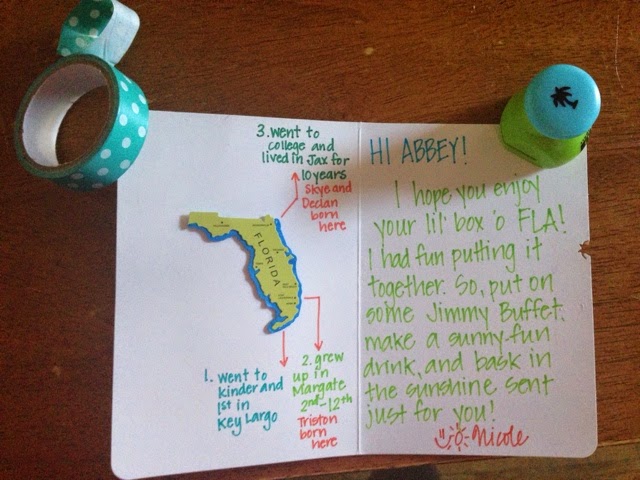 3. went to
college and
lived in Jax for
10 years
Skye and
Declan
born
here
FLORIDA
1. went to
kinder and
1st in
Key Largo
2. grew
up in
Margate
2nd-12th
Triston
born
here
HI ABBEY!
I hope you enjoy
your lil' box 'o FLA!
I had fun putting it
together. So, put on
some Jimmy Buffet.
make a sunny-fun
drink, and bask in
the sunshine sent
just for you!
Nicole